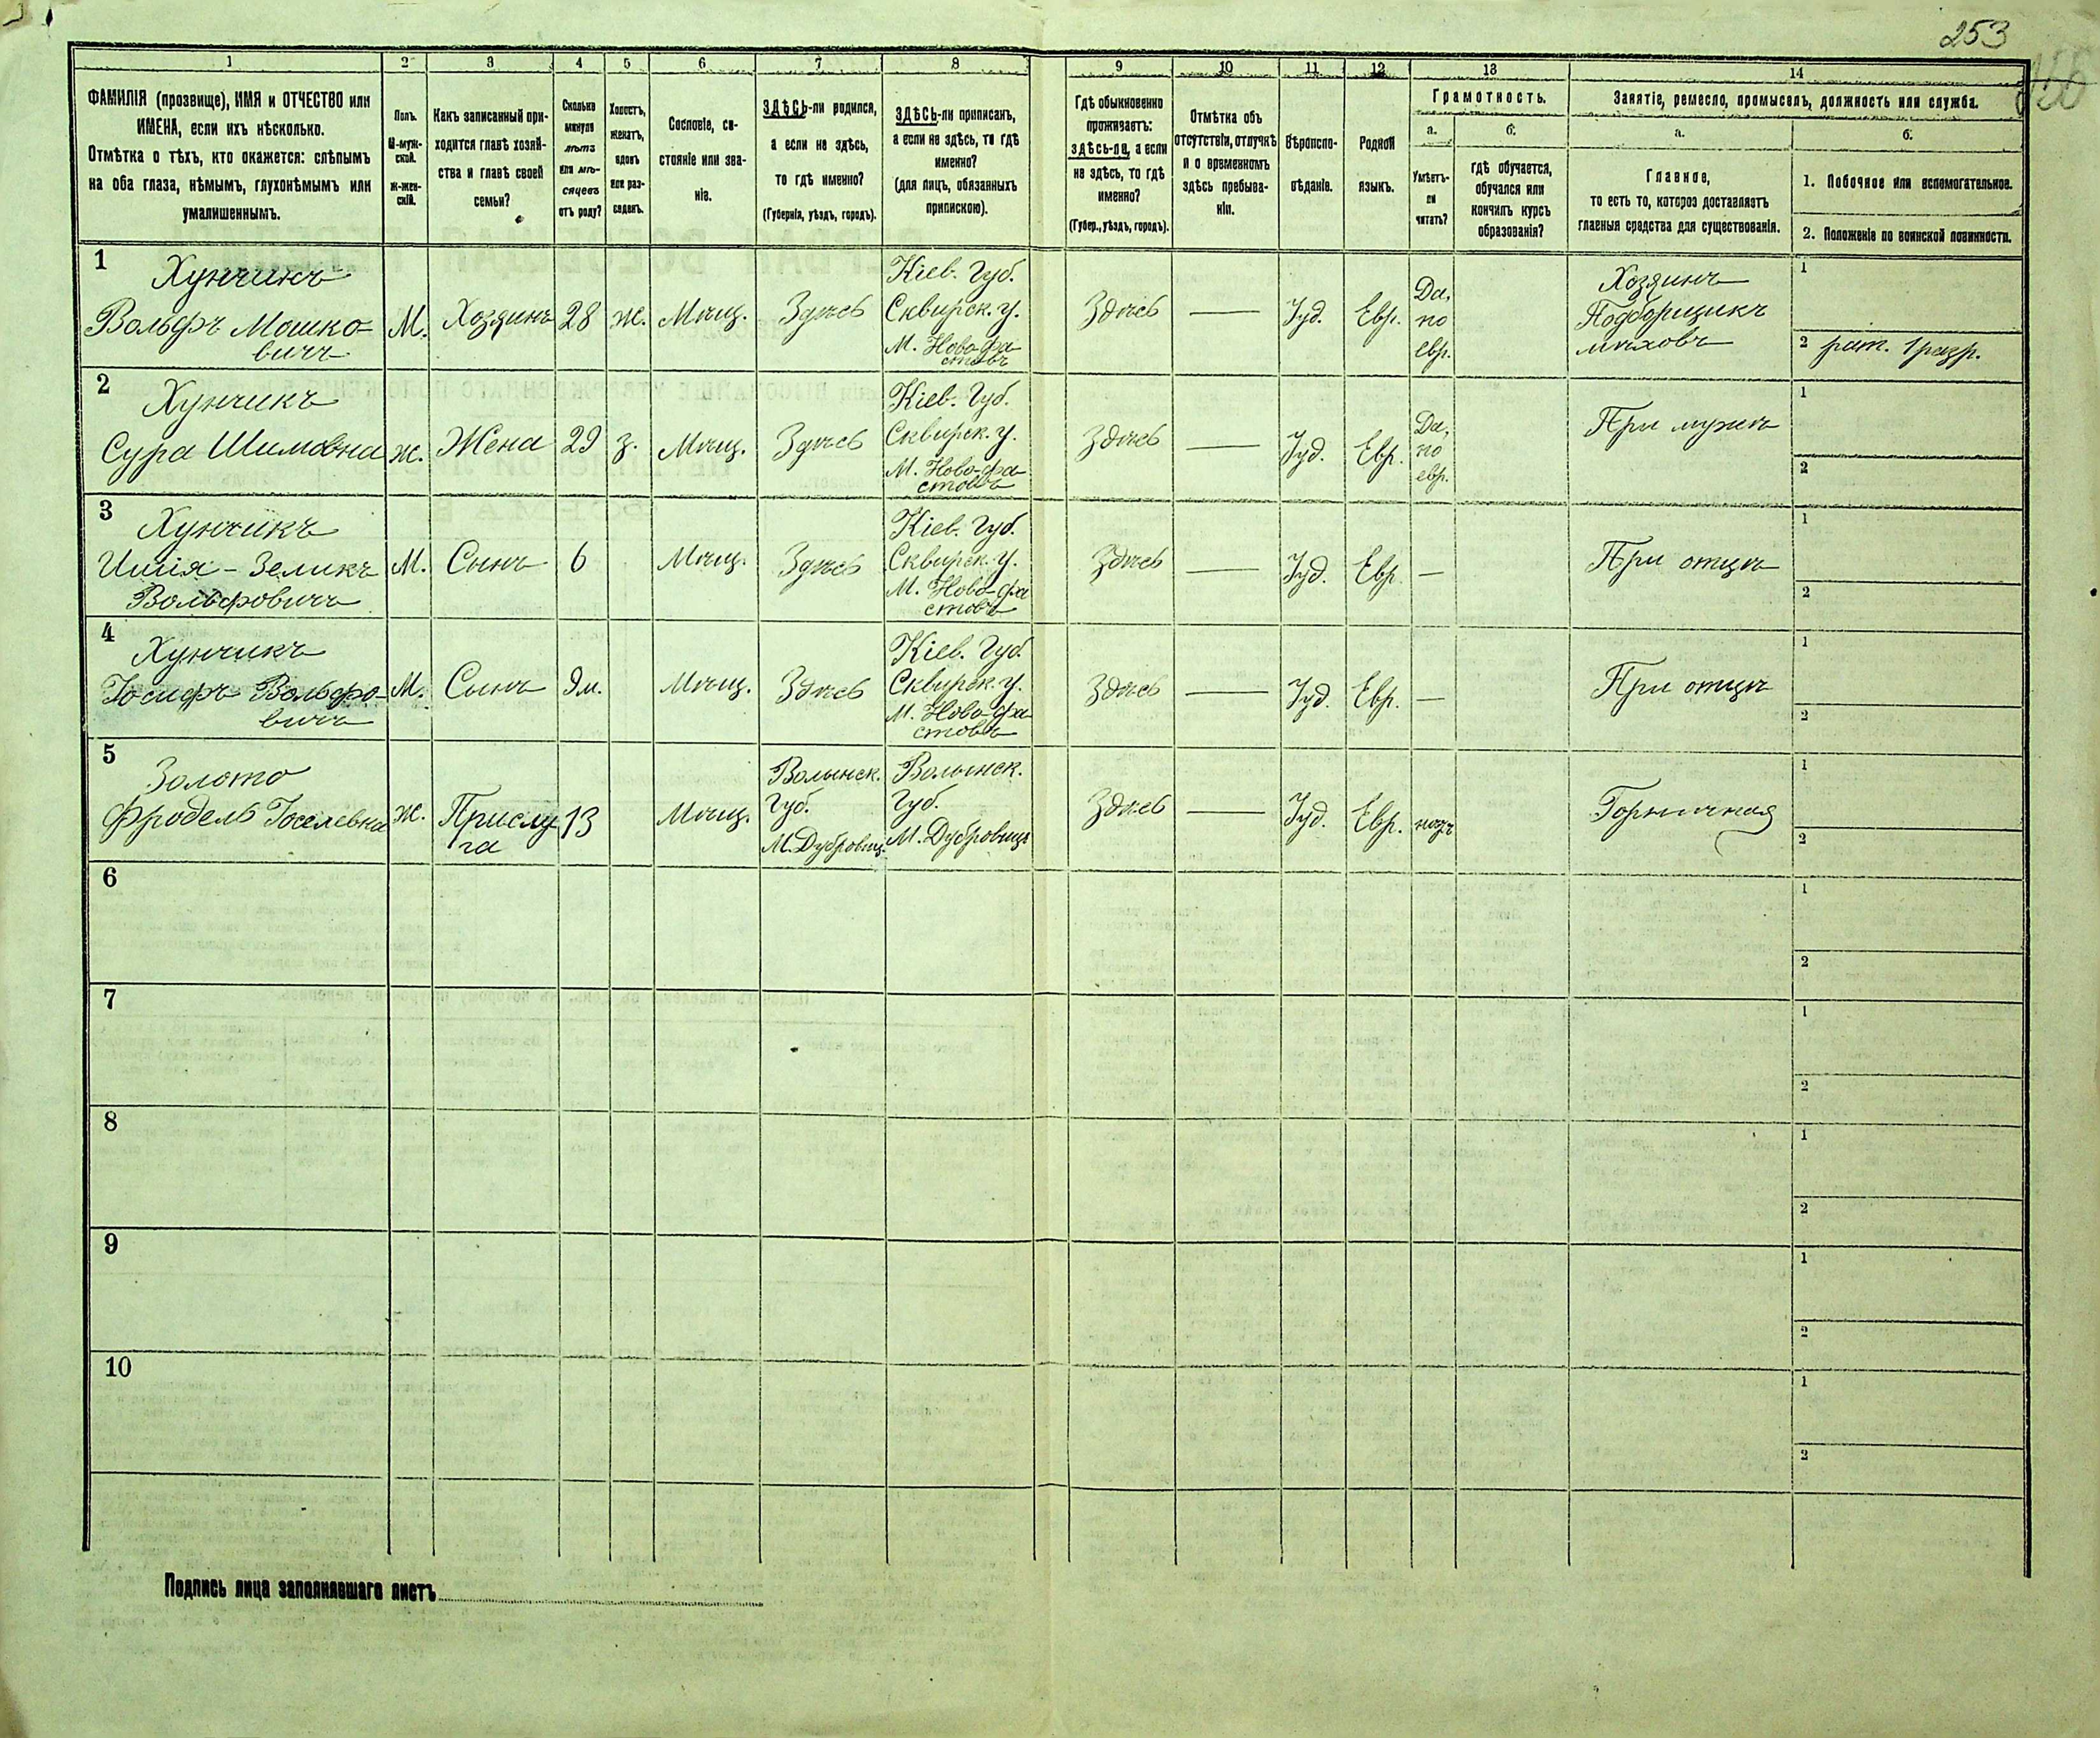 253
1 2 3 4 5 6 7 8 9 10 11 12 13 14
ФАМИЛІЯ (прозвище), ИМЯ и ОТЧЕСТВО или
ИМЕНА, если ихъ нѣсколько.
Отмѣтка о тѣхъ, кто окажется: слѣпымъ
на оба глаза, нѣмымъ, глухонѣмымъ или
умалишеннымъ.
Полъ.
М-муж-
ской.
Ж-жен-
скій.
Какъ записанный при-
ходится главѣ хозяй-
ства и главѣ своей
семьи?
Сколько
минуло
лѣтъ
или мѣ-
сяцевъ
отъ роду?
Холостъ,
женатъ,
вдовъ
или раз-
веденъ.
Сословіе, со-
стояніе или зва-
ніе.
ЗДѢСЬ-ли родился,
а если не здѣсь,
то гдѣ именно?
(Губернія, уѣздъ, городъ).
ЗДѢСЬ-ли приписанъ,
а если не здѣсь, то гдѣ
именно?
(для лицъ, обязанныхъ
припискою).
Гдѣ обыкновенно
проживаетъ:
здѣсь-ли, а если
не здѣсь, то гдѣ
именно?
(Губер., уѣздъ, городъ).
Отмѣтка объ
отсутствіи, отлучкѣ
и о временномъ
здѣсь пребыва-
ніи.
Вѣроиспо-
вѣданіе.
Родной
языкъ.
Грамотность.
а.
Умѣетъ-
ли
читать?
б.
гдѣ обучается,
обучался или
кончилъ курсъ
образованія?
Занятіе, ремесло, промыселъ, должность или служба.
а.
Главное,
то есть то, которое доставляетъ
главныя средства для существованія.
б.
1. Побочное или вспомогательное.
2. Положеніе по воинской повинности.
1
Хунчикъ
Вольфъ Мошко-
вичъ
М.
Хозяинъ
28
ж.
Мѣщ.
Здѣсь
Кіев. Губ.
Сквирск. у.
М. Ново-фа-
стовъ
Здѣсь
—
Іуд.
Евр.
Да,
по
евр.
Хозяинъ
Подборщикъ
мѣховъ
1
2 рат. 1 разр.
2
Хунчикъ
Сура Шимовна
ж.
Жена
29
з.
Мѣщ.
Здѣсь
Кіев. Губ.
Сквирск. у.
М. Ново-фа-
стовъ
Здѣсь
—
Іуд.
Евр.
Да,
по
евр.
При мужѣ
1
2
3
Хунчикъ
Зеликъ
Вольфовичъ
М.
Сынъ
6
Мѣщ.
Здѣсь
Кіев. Губ.
Сквирск. у.
М. Ново-фа
стовъ
Здѣсь
—
Іуд.
Евр.
—
При отцѣ
1
2
4
Хунчикъ
Іосифъ Вольфо-
вичъ
М.
Сынъ
9м.
Мѣщ.
Здѣсь
Кіев. Губ.
Сквирск. у.
М. Ново-фа-
стовъ
Здѣсь
—
Іуд.
Евр.
—
При отцѣ
1
2
5
Золото
Фродель Іоселевна
ж.
Прислу-
га
13
Мѣщ.
Волынск.
Губ.
М. Дубровиц.
Волынск.
Губ.
М. Дубровицъ
Здѣсь
—
Іуд.
Евр.
Горничная
1
2
6
1
2
7
1
2
8
1
2
9
1
2
10
1
2
Подпись лица заполнявшаго листъ